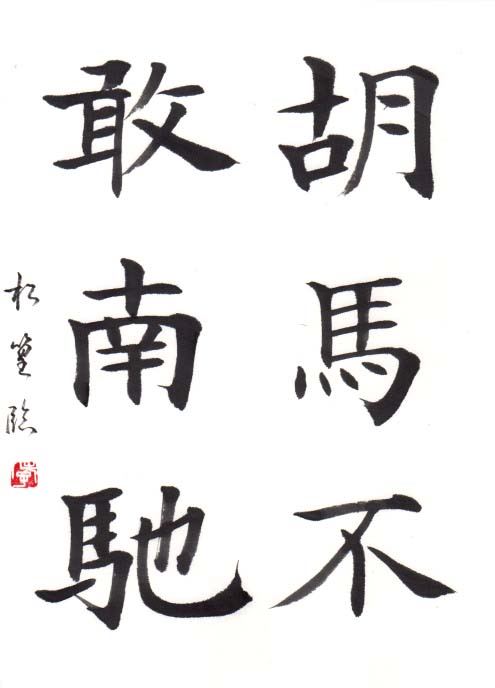 胡馬不
敢南馳
松篁臨